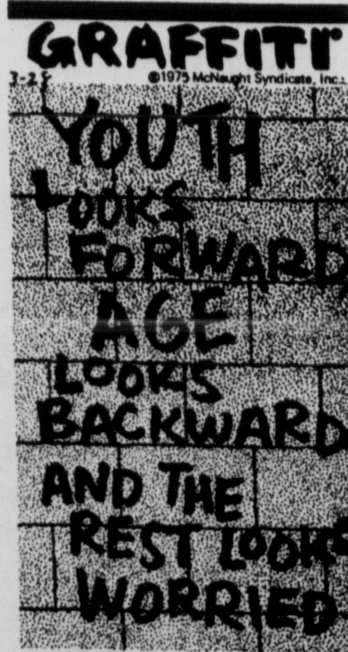 GRAFFITI
3-28 ©1975 McNaught Syndicate, Inc.
YOUTH
LOOKS
FORWARD,
AGE
LOOKS
BACKWARD
AND THE
REST LOOKS
WORRIED